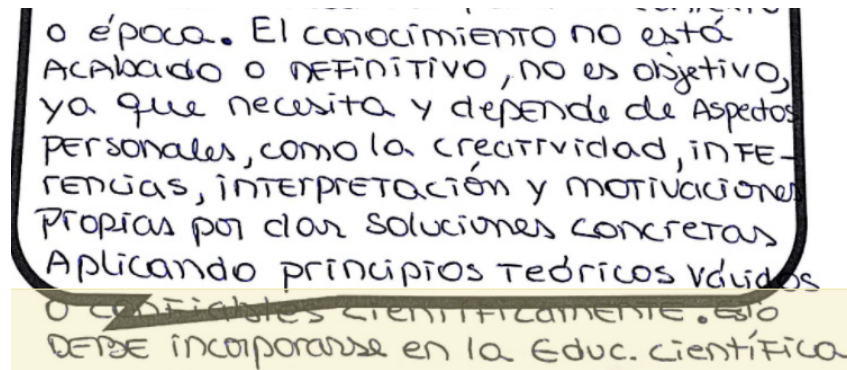 o época. El conocimiento no está
Acabado o DEFINITIVO, no es objetivo,
ya que necesita y depende de Aspectos
Personales, como la creatividad, infe-
rencias, interpretación y motivaciones
Propias por dar soluciones concretas
Aplicando principios teóricos válidos
o confiables científicamente. Esto
DEBE incorporarse en la Educ. científica